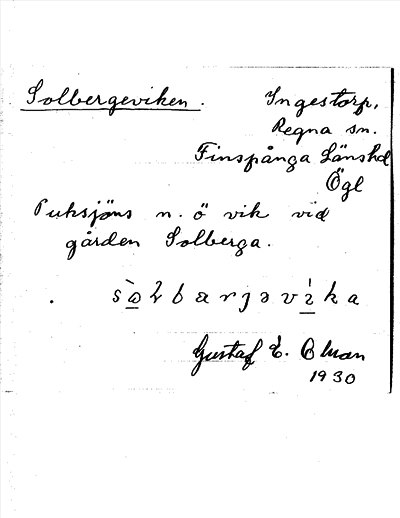 Solbergeviken. Ingestorp,
Regna sn.
Finspånga Länshd
Ögl
Puksjöns n. ö vik vid
gården Solberga.
Gustaf E.
1930